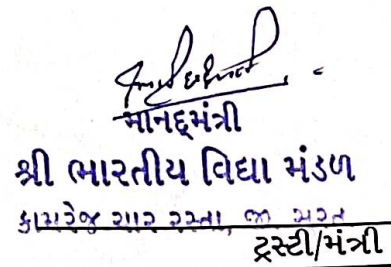 માનદ્દમંત્રી
શ્રી ભારતીય વિદ્યા મંડળ
કામરેજ ચાર રસ્તા, જી સુરત
ટ્રસ્ટી/મંત્રી